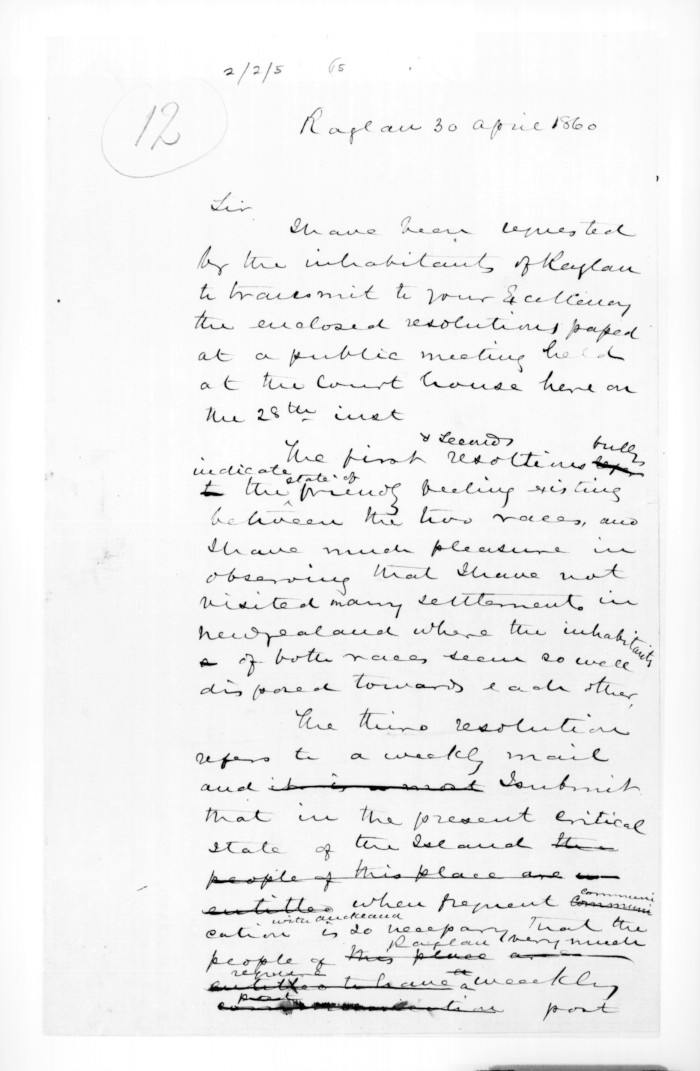 2/2/5
12
Raglan 30 April 1860
Sir
I have been requested
by the inhabitants of Raglan
to transmit to your Excellency
the enclosed resolutions passed
at a public meeting held
at the Court house here on
the 28th inst
& Second
The first resolutions fully
indicate state of
the friendly feeling existing
between the two races, and
I have much pleasure in
observing that I have not
visited many settlements in
Newzealand where the inhabitants
of both races seem so well
disposed towards each other,
The third resolution
refers to a weekly mail
and it is a most I submit
that in the present critical
state of the Island the
people of this place are
entitled when frequent communi
communi
with auckland
cation is so necessary that the
Raglan very much
people of this place are
require a
entitled to have a weekly
post
communication post